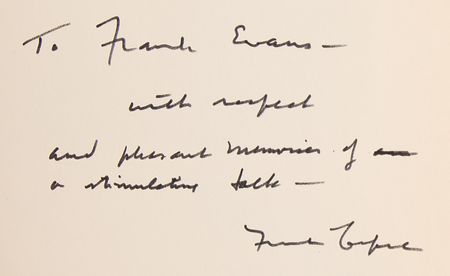 To Frank Evans—
with respect
and pleasant memories of
a stimulating talk—
Frank Capra